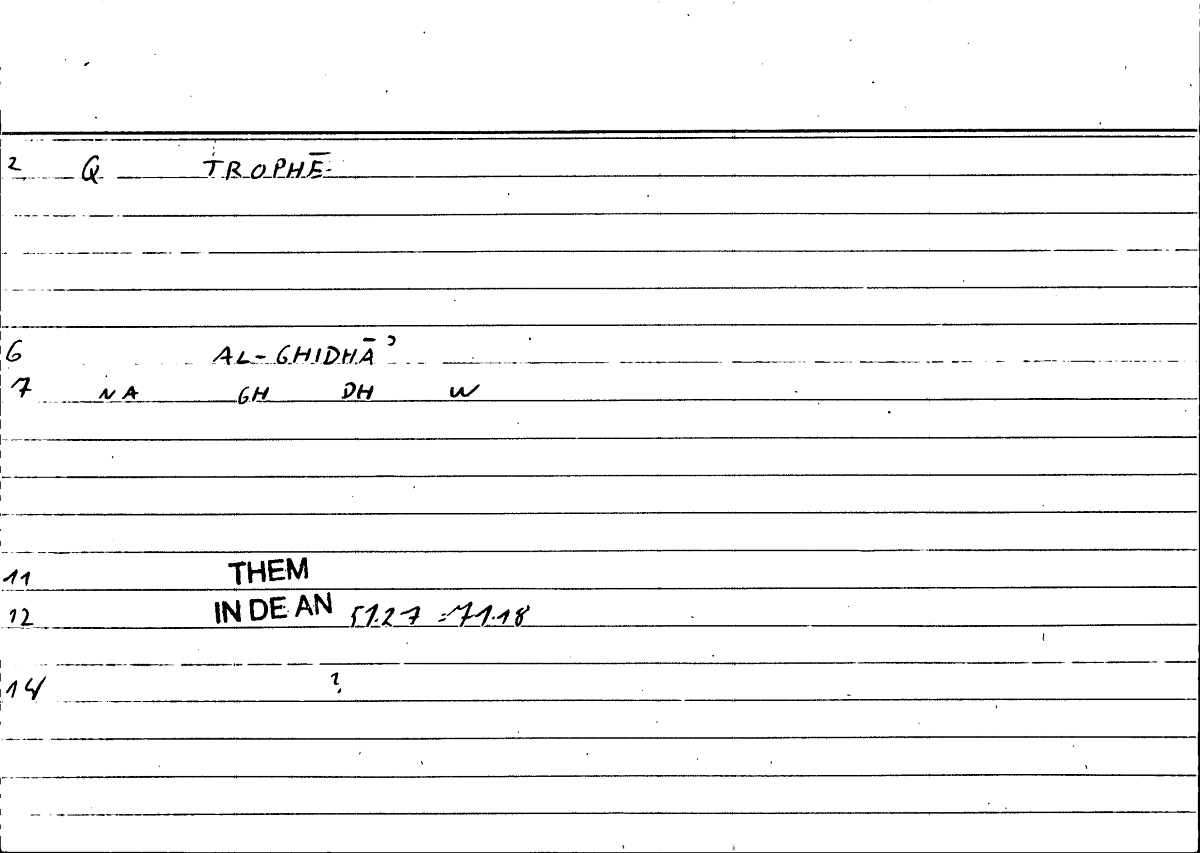 2 Q TROPHĒ
6 AL-GHIDHĀʾ
7 NA GH DH W
11 THEM
12 IN DE AN 51.27 = 71.18
14 ?